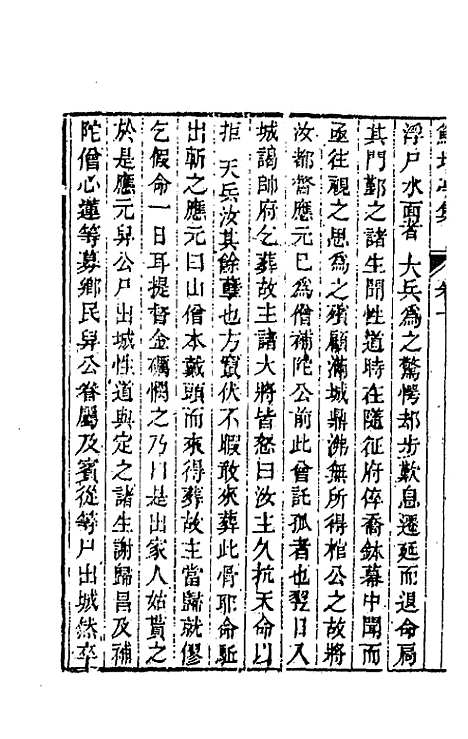 鮚埼亭集 卷一
浮尸水面者 大兵為之驚愕却步歎息遷延而退命扃
其門鄞之諸生聞性道時在隨征府倅喬鉢幕中聞而
亟往視之思為之殯顧滿城鼎沸無所得棺公之故將
汝都督應元已為僧補陀公前此曾託孤者也翌日入
城謁帥府乞葬故主諸大將皆怒曰汝主久抗天命以
拒 天兵汝其餘孽也方竄伏不暇敢來葬此骨耶命駈
出斬之應元曰山僧本戴頭而來得葬故主當歸就僇
乞假命一日耳提督金礪憫之乃曰是出家人姑貰之
於是應元舁公尸出城性道與定之諸生謝歸昌及補
陀僧心蓮等募鄉民舁公眷屬及賓從等尸出城然卒